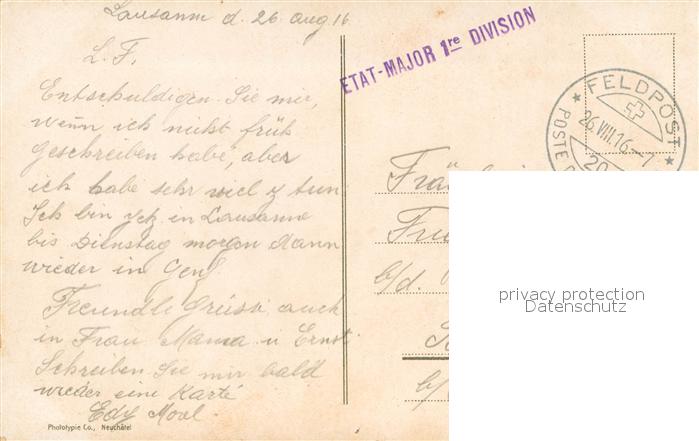 Lausanne d. 26. aug 16
L. F.
Entschuldigen Sie mir,
wenn ich nicht früh
geschreiben habe, aber
ich habe sehr viel z tun.
Ich bin jetz in Lausanne
bis Dienstag morgen dann
wieder in Genf
Freundle Grüsse auch
in Frau Mama u Ernst
Schreiben Sie mir bald
wieder eine Karte
Edy
Phototypie Co., Neuchâtel
ETAT-MAJOR 1re DIVISION
FELDPOST
26.VIII.16.-7
20
POSTE
b/d.
privacy protection
Datenschutz